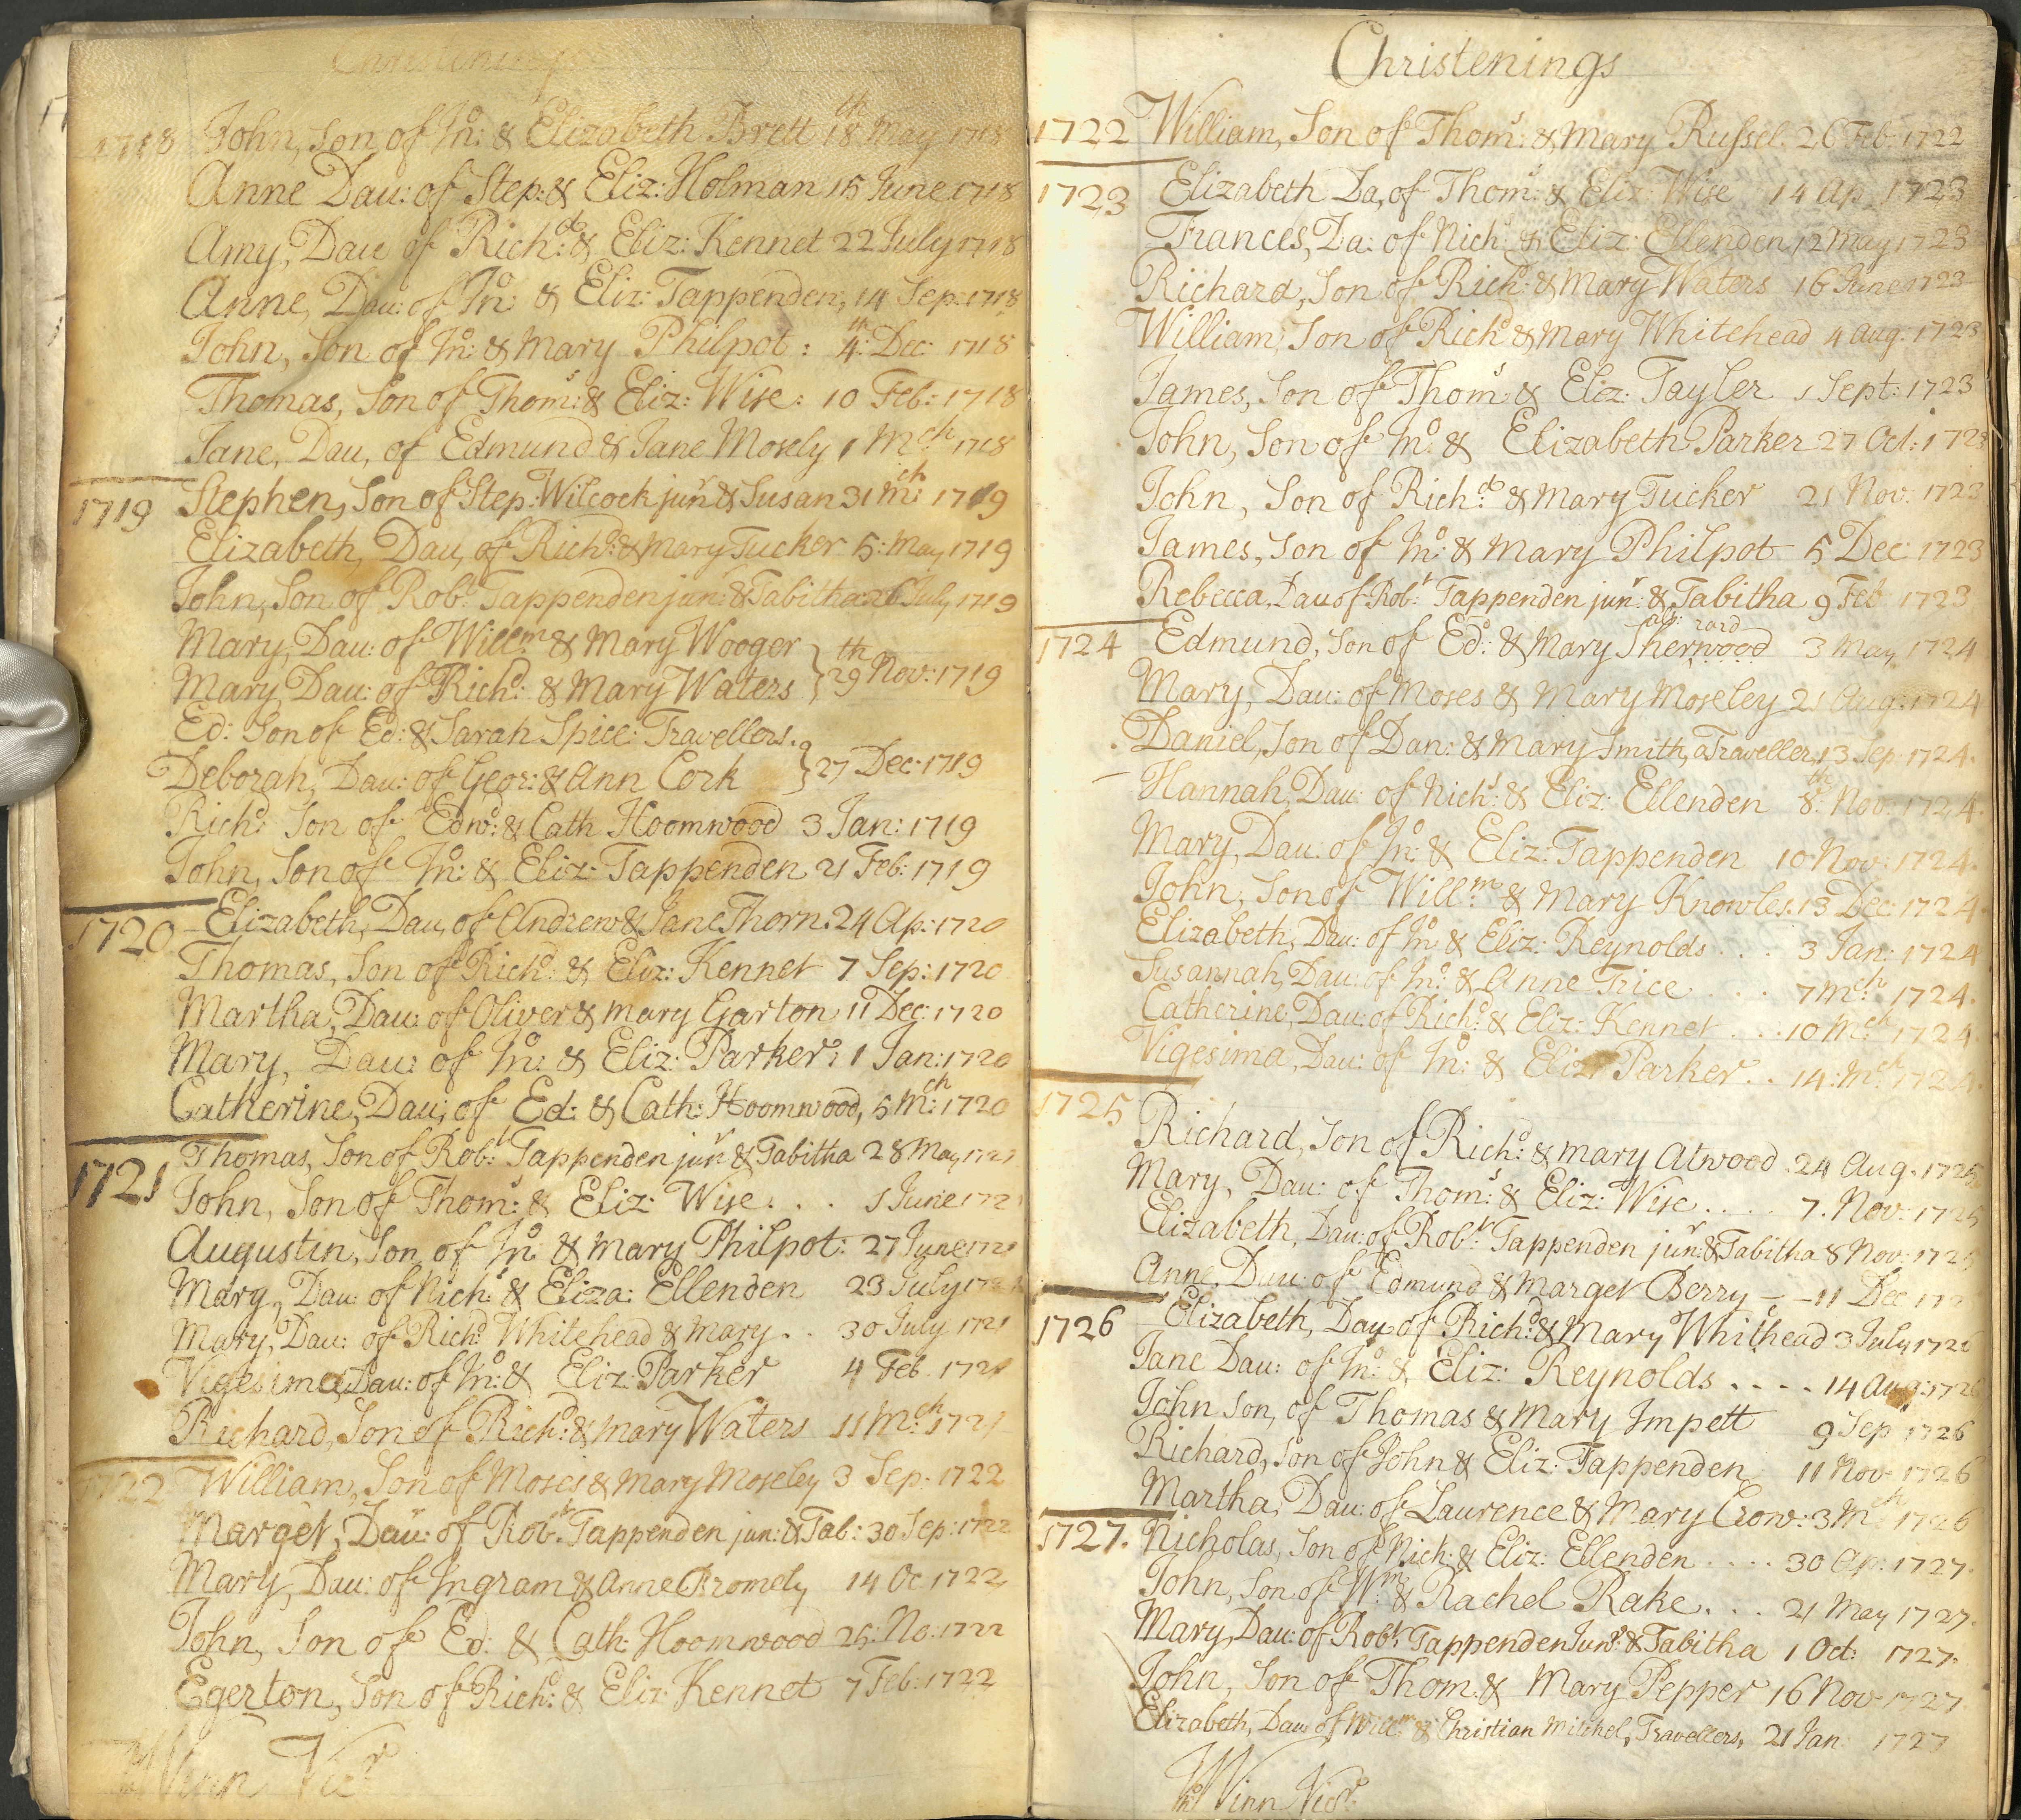 Christenings
1718 John, Son of Jno: & Elizabeth Brett 18th May 1718
Anne Dau: of Step: & Eliz: Holman 15 June 1718
Amy, Dau of Richd: & Eliz: Kennet 22 July 1718
Anne, Dau: of Jno: & Eliz: Tappenden, 14 Sep: 1718
John, Son of Jno: & Mary Philpot: 4th: Dec 1718
Thomas, Son of Thoms: & Eliz: Wise: 10 Feb: 1718
Jane, Dau, of Edmund & Jane Mosely 1 Mch 1718
1719 Stephen, Son of Step: Wilcock junr & Susan 31 Mch: 1719
Elizabeth, Dau, of Richd: & Mary Tucker 5: May 1719
John, Son of Robt: Tappenden junr: & Tabitha: 26 July 1719
Mary, Dau: of Willm: & Mary Wooger
Mary, Dau: of Richd: & Mary Waters } 29th Nov: 1719
Ed: Son of Ed: & Sarah Spice: Travellers.
Deborah, Dau: of Geor: & Ann Cork } 27 Dec: 1719
Richd: Son of Edwd: & Cath Hoomwood 3 Jan: 1719
John, Son of Jno: & Eliz: Tappenden 21 Feb: 1719
1720 Elizabeth, Dau, of Andrew & Jane Thorn. 24 Ap: 1720
Thomas, Son of Richd: & Eliz: Kennet 7 Sep: 1720
Martha, Dau: of Oliver & Mary Garton 11 Dec: 1720
Mary, Dau: of Jno: & Eliz: Parker: 1 Jan: 1720
Catherine, Dau; of Ed: & Cath: Hoomwood, 5 Mch: 1720
1721 Thomas, Son of Robt: Tappenden junr & Tabitha 28 May 1721
John, Son of Thoms: & Eliz: Wise. . . 1 June 1721
Augustin, Son, of Jno: & Mary Philpot: 27 June 1721
Mary, Dau: of Nichs: & Eliza: Ellenden 23 July 1721
Mary, Dau: of Richd: Whitehead & Mary. . 30 July 1721
Vigesima, Dau: of Jno: & Eliz: Parker 4 Feb. 1721
Richard, Son of Richd: & Mary Waters 11 Mch: 1721
1722 William, Son of Moses & Mary Moseley 3 Sep: 1722
Marget, Dau: of Robt: Tappenden jun: & Tab: 30 Sep: 1722
Mary, Dau: of Ingram & Anne Bromely 14 Oc 1722
John, Son of Ed: & Cath: Hoomwood 25: No: 1722
Egerton, Son of Richd: & Eliz: Kennet 7 Feb: 1722
Winn Vicr
Christenings
1722 William, Son of Thoms: & Mary Russel. 26 Feb: 1722
1723 Elizabeth Da, of Thoms: & Eliz: Wise 14 Ap, 1723
Frances, Da: of Nichs: & Eliz: Ellenden 12 May 1723
Richard, Son of Richd: & Mary Waters 16 June 1723
William, Son of Richd & Mary Whitehead 4 Aug: 1723
James, Son of Thoms & Eliz: Tayler 1 Sept: 1723
John, Son of Jno: & Elizabeth Parker 27 Oct: 1723
John, Son of Richd: & Mary Tucker 21 Nov: 1723
James, Son of Jno: & Mary Philpot 5 Dec: 1723
Rebecca, Dau of Robt: Tappenden junr: & Tabitha 9 Feb 1723
rard
1724 Edmund, Son of Ed: & Mary Sherwood 3 May 1724
Mary, Dau: of Moses & Mary Moseley 21 Aug: 1724
Daniel, Son of Dan: & Mary Smith, a Traveller, 13 Sep: 1724.
Hannah, Dau: of Nichs: & Eliz: Ellenden 8th: Nov: 1724.
Mary, Dau: of Jno: & Eliz: Tappenden 10 Nov: 1724.
John, Son of Willm: & Mary Knowles. 13 Dec: 1724.
Elizabeth, Dau: of Jno: & Eliz: Reynolds. . . 3 Jan: 1724
Susannah, Dau: of Jno: & Anne Trice . . . 7 Mch: 1724.
Catherine, Dau: of Richd: & Eliz: Kennet . . . 10 Mch 1724.
Vigesima, Dau: of Jno: & Eliz: Parker. . 14: Mch: 1724.
1725 Richard, Son of Richd: & Mary Atwood. 24 Aug. 1725
Mary, Dau: of Thoms: & Eliz: Wise . . . . 7. Nov: 1725
Elizabeth, Dau: of Robt: Tappenden junr: & Tabitha 8 Nov: 1725
Anne, Dau: of Edmund & Marget Berry - - 11 Dec: 172
1726 Elizabeth, Dau of Richd: & Mary Whithead 3 July 1726
Jane Dau: of Jno: & Eliz: Reynolds . . . . 14 Aug: 1726
John Son, of Thomas & Mary Impett 9 Sep 1726
Richard, Son of John & Eliz: Tappenden 11 Nov 1726
Martha, Dau: of Laurence & Mary Crow: 3 Mch 1726
1727. Nicholas, Son of Nich: & Eliz: Ellenden . . . . 30 Ap: 1727.
John, Son of Wm: & Rachel Rake. . . 21 May 1727.
Mary, Dau: of Robt: Tappenden Junr: & Tabitha 1 Oct: 1727.
John, Son of Thom: & Mary Pepper 16 Nov 1727.
Elizabeth, Dau: of Willm & Christian Mitchel, Travellers, 21 Jan 1727
Winn Vicr.